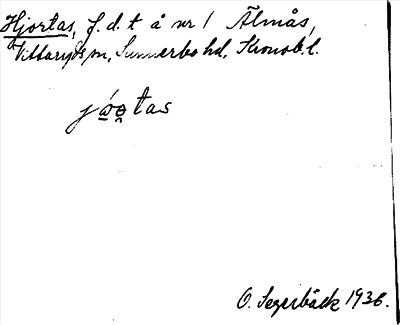 Hjortas, f.d. t å nr 1 Älmås,
Vittaryds sn, Sunnerbo hd, Kronob. l.
jo̱o̯tas
O. Segerbäck 1936.